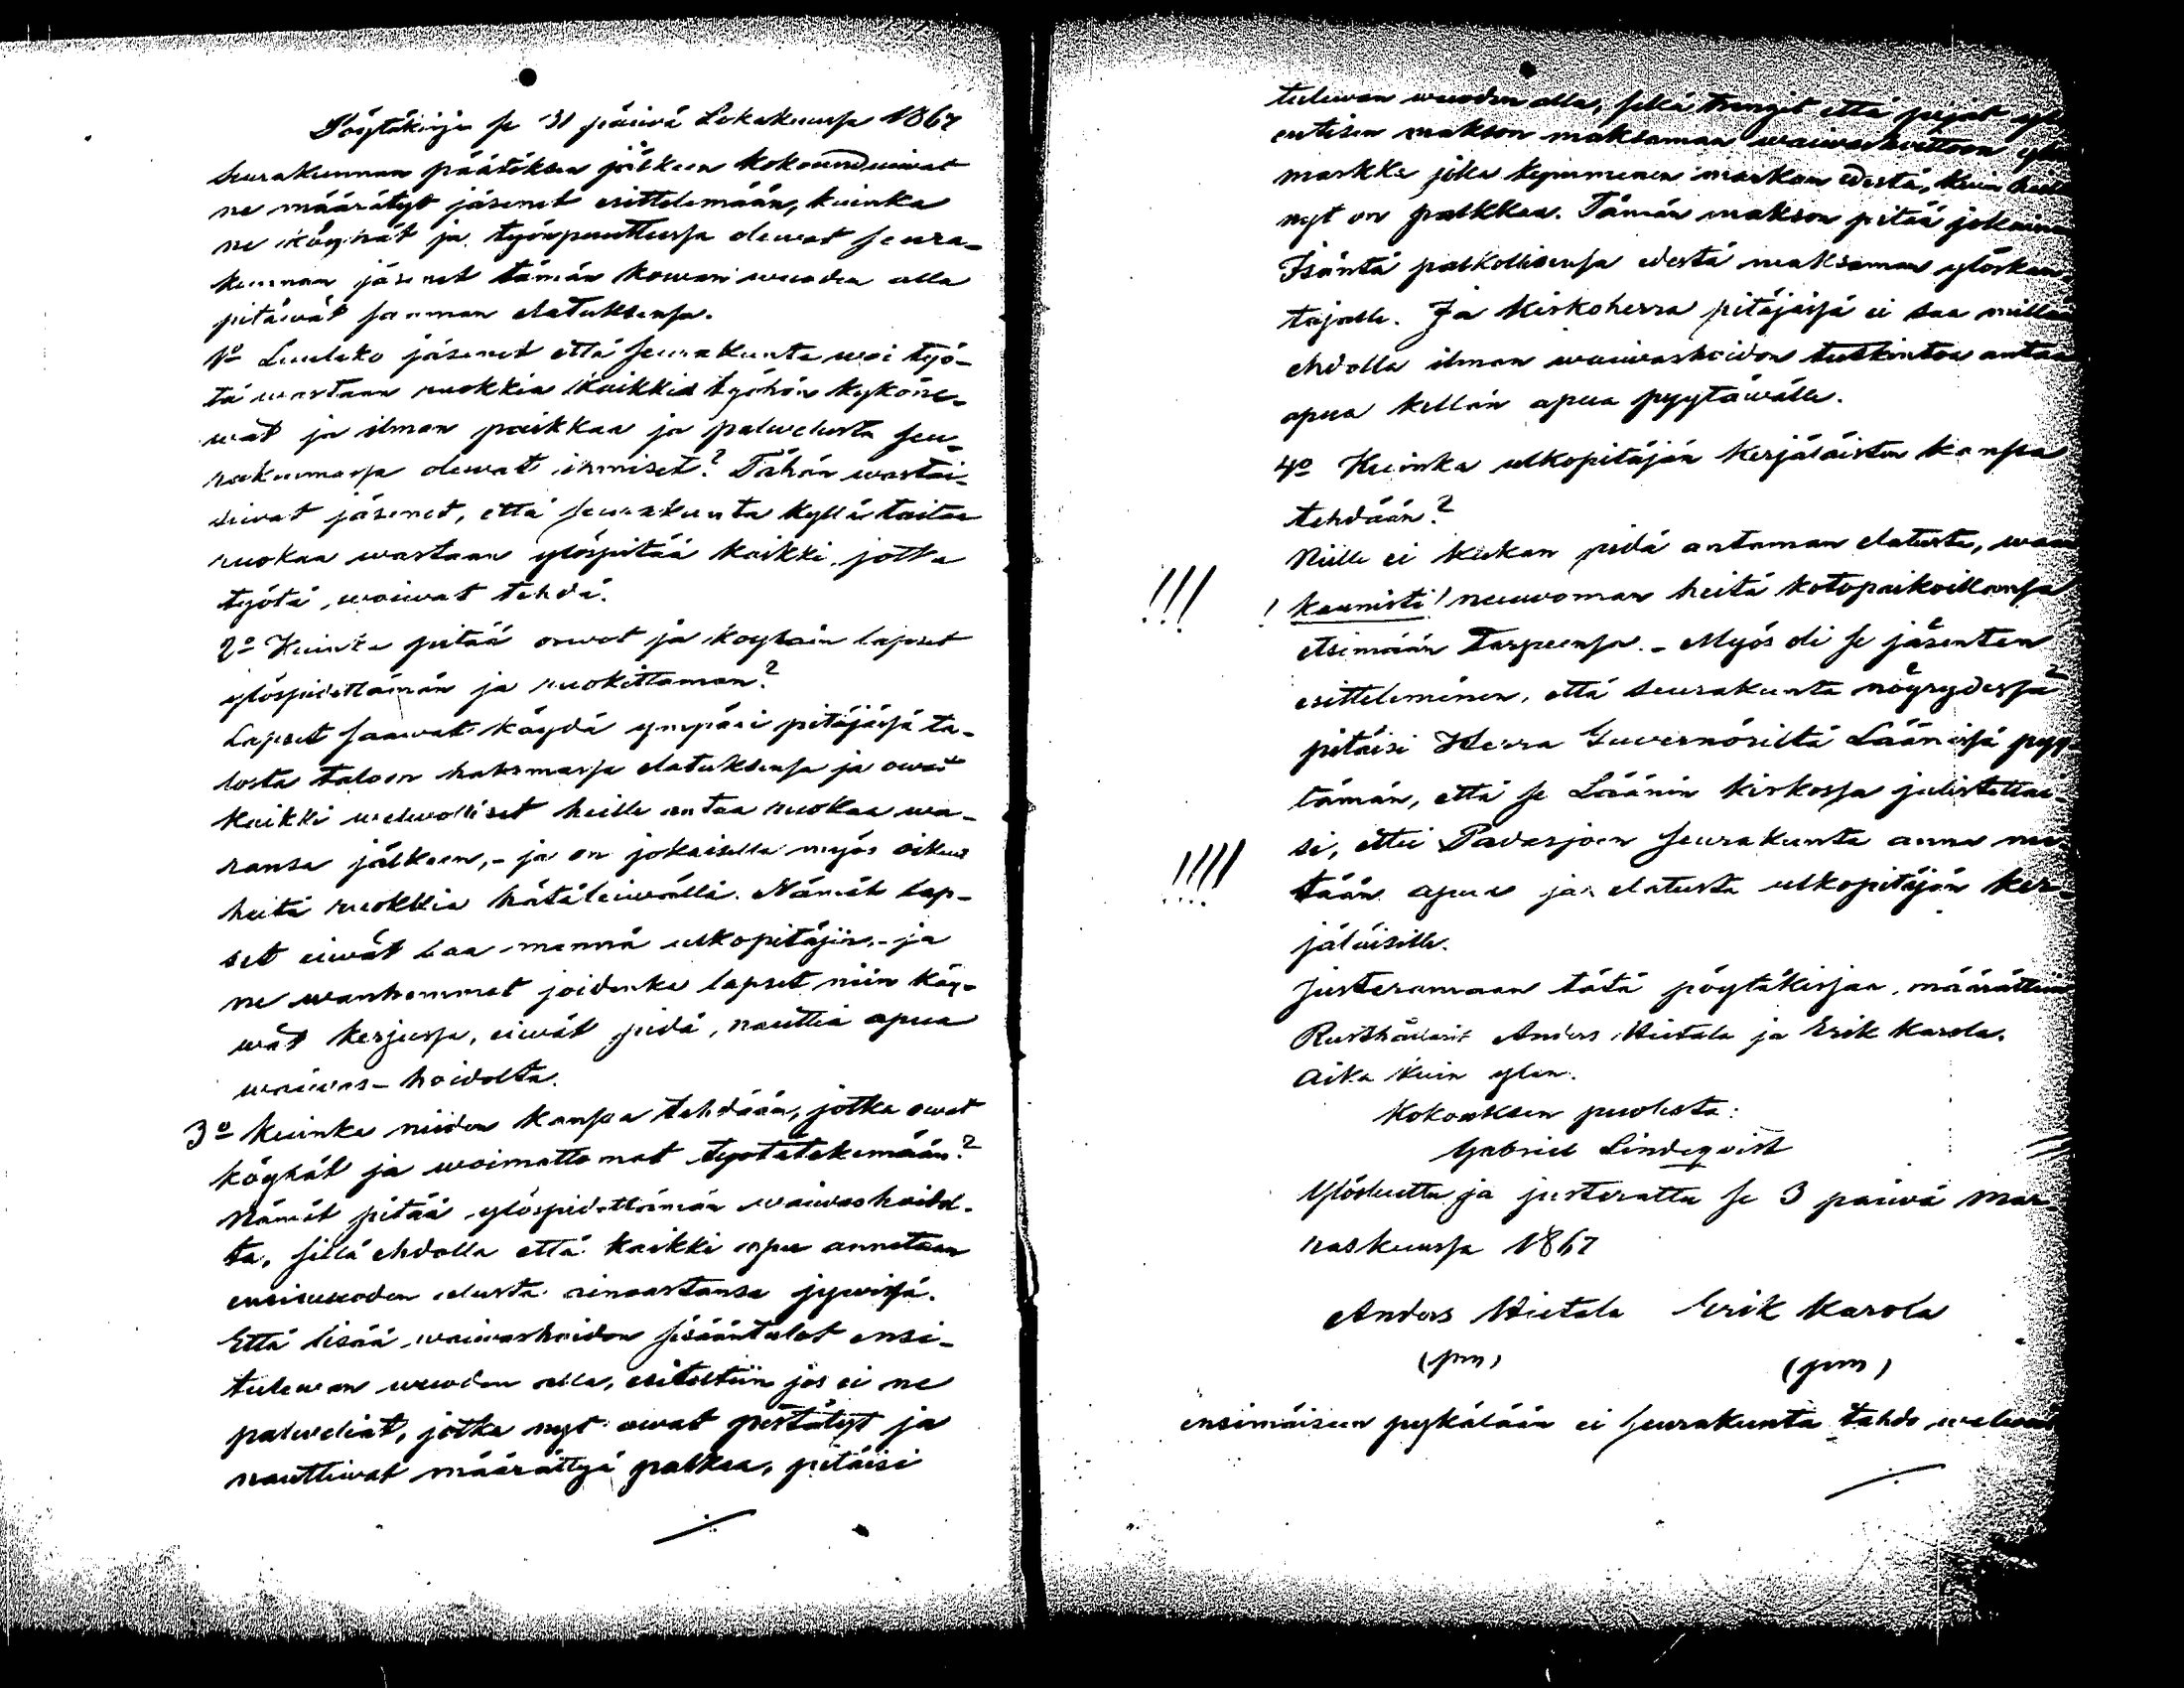 Pöytäkirja se 31 päivä Lokakuussa 1867
Seurakunnan päätöksen jälkeen kokoundsivat
ne määrätyt jäsenet esittelemään, kuinka
ne köyhät ja työnpuuttussa olewat seura-
kunnan jäsenet tämän kowan wuoden alla
pitäwät saaman elatuksensa.
1o Luuleko jäsenet että seurakunta woi työ-
tä wastaan ruokkia kaikkia työhön kyköne-
wät ja ilman paikkaa ja palwelusta seu-
rakunnassa olewat ihmiset? Tähän wastai-
siwat jäsenet, että seurakunta kyllä taitaa
ruokaa wastaan ylöspitää kaikki jotka
työtä woiwat tehdä.
2o Kuinka pitää orwot ja koyhäin lapset
ylöspidettämän ja ruokittaman?
Lapset saawat käydä ympäri pitäjässä ta-
losta taloon hakemassa elatuksensa ja owat
kaikki welwolliset heille antaa ruokaa wa-
ransa jälkeen,- ja on jokaisella myös oikeus
heitä ruokkia hätäleiwällä. Nämät lap-
set eiwät saa mennä ulkopitäjiin,- ja
ne wanhemmat joidenka lapset niin käy-
wät kerjussa, eiwät pidä nauttia apua
waiwas-hoidolta.
3o Kuinka niiden kanssa tehdään, jotka owat
köyhät ja woimattomat työtätekemään?
Nämät pitää ylöspidettämän waiwashoidol-
ta, sillä ehdolla että kaikki apu annetaan
ensiwuoden alusta ainoastansa jywissä.
Että lisää waiwashoidon sisääntulot ensi-
tulewan wuoden alla, esiteltiin jos ei ne
palweliat, jotka nyt owat pestätyt ja
nauttiwat määrättyä palkkaa, pitäisi
tulewan wuoden alla, sekä trengit että pijat
entisen makson maksaman waiwashoittoon
markka joka kymmenen markan edestä, kuin
nyt on palkkaa. Tämän makson pitää
Isäntä palkollisensa edestä maksaman
tajalle. Ja Kirkoherra pitäjässä ei saa
ehdolla ilman waiwashoidon tutkintoa antaa
apua kellän apua pyytäwälle.
4o Kuinka ulkopitäjän kerjäläisten kanssa
tehdään?
Niille ei kukan pidä antaman elatusta, waan
!!! ! kauniisti! neuwoman heitä kotopaikoillansa
etsimään Tarpeensa. - Myös oli se jäsenten
esitteleminen, että seurakunta nöyrydessä
pitäisi Herra Guvernöriltä Läänissä pyy-
tämän, että se Läänin kirkossa julistettai-
!!!! si, ettei Padasjoen seurakunta anna mi-
tään apua ja elatusta ulkopitäjän ker-
jäläisille.
Justeramaan tätä pöytäkirjaa, määrättiin
Rusthållarit Anders Hietala ja Erik Karola.
Aika kuin ylen.
Kokouksen puolesta:
Gabriel Lindeqvist
Ylösluettu ja justerattu se 3 päiwä Mar-
raskuussa 1867
Anders Hietala Erik Karola
(pm) (pm)
ensimäiseen pykälään ei seurakunta tahdo